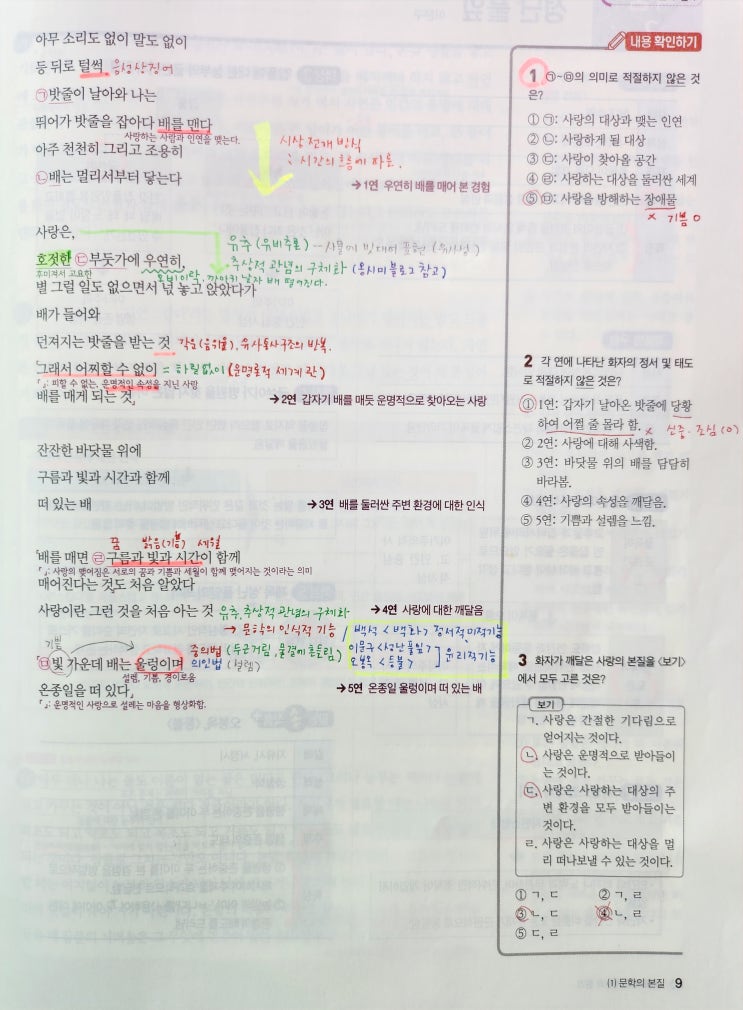 아무 소리도 없이 말도 없이
등 뒤로 털썩 음성상징어
㉠밧줄이 날아와 나는
뛰어가 밧줄을 잡아다 배를 맨다
사랑하는 사람과 인연을 맺는다.
아주 천천히 그리고 조용히
㉡배는 멀리서부터 닿는다
시상 전개 방식
: 시간의 흐름에 따름.
→1연 우연히 배를 매어 본 경험
사랑은,
유추(유비추론) - 사물에 빗대어 표현 (유사성)
호젓한 ㉢부둣가에 우연히,
추상적 관념의 구체화 (용시미 블로그 참고)
후미져서 고요한
오비이락, 까마귀 날자 배 떨어진다.
별 그럴 일도 없으면서 넋 놓고 앉았다가
배가 들어와
던져지는 밧줄을 받는 것 각운(음위율), 유사통사구조의 반복.
『그래서 어찌할 수 없이 = 하릴없이 (운명론적 세계관)
『』: 피할 수 없는 운명적인 속성을 지닌 사랑
배를 매게 되는 것』
→2연 갑자기 배를 매듯 운명적으로 찾아오는 사랑
잔잔한 바닷물 위에
구름과 빛과 시간과 함께
떠 있는 배
→3연 배를 둘러싼 주변 환경에 대한 인식
꿈 밝음(기쁨) 세월
『배를 매면 ㉣구름과 빛과 시간이 함께
『』: 사랑의 맺어짐은 서로의 꿈과 기쁨과 세월이 함께 맺어지는 것이라는 의미
매어진다는 것도 처음 알았다
사랑이란 그런 것을 처음 아는 것 유추, 추상적 관념의 구체화
→4연 사랑에 대한 깨달음
→ 문학의 인식적 기능 / 백석 <백화> 정서적,미적기능
기쁨
중의법 (두근거림, 물결에 흔들림)
이문구 <성난 풀잎>
오봉옥 <등불> ] 윤리적기능
『㉤빛 가운데 배는 울렁이며 의인법 (설렘)
설렘, 기쁨, 경이로움
온종일을 떠 있다』
→5연 온종일 울렁이며 떠 있는 배
『』: 운명적인 사랑으로 설레는 마음을 형상화함.
내용 확인하기
1 ㉠~㉤의 의미로 적절하지 않은 것은?
① ㉠: 사랑의 대상과 맺는 인연
② ㉡: 사랑하게 될 대상
③ ㉢: 사랑이 찾아올 공간
④ ㉣: 사랑하는 대상을 둘러싼 세계
⑤ ㉤: 사랑을 방해하는 장애물
× 기쁨 O
2 각 연에 나타난 화자의 정서 및 태도
로 적절하지 않은 것은?
① 1연: 갑자기 날아온 밧줄에 당황
하여 어쩔 줄 몰라 함. × 신중·조심(O)
② 2연: 사랑에 대해 사색함.
③ 3연: 바닷물 위의 배를 담담히
바라봄.
④ 4연: 사랑의 속성을 깨달음.
⑤ 5연: 기쁨과 설렘을 느낌.
3 화자가 깨달은 사랑의 본질을 <보기>
에서 모두 고른 것은?
보기
ㄱ. 사랑은 간절한 기다림으로
얻어지는 것이다.
ㄴ. 사랑은 운명적으로 받아들이
는 것이다.
ㄷ. 사랑은 사랑하는 대상의 주
변 환경을 모두 받아들이는
것이다.
ㄹ. 사랑은 사랑하는 대상을 멀
리 떠나보낼 수 있는 것이다.
① ㄱ, ㄷ ② ㄱ, ㄹ
③ ㄴ, ㄷ ④ ㄴ, ㄹ
⑤ ㄷ, ㄹ
(1) 문학의 본질 9